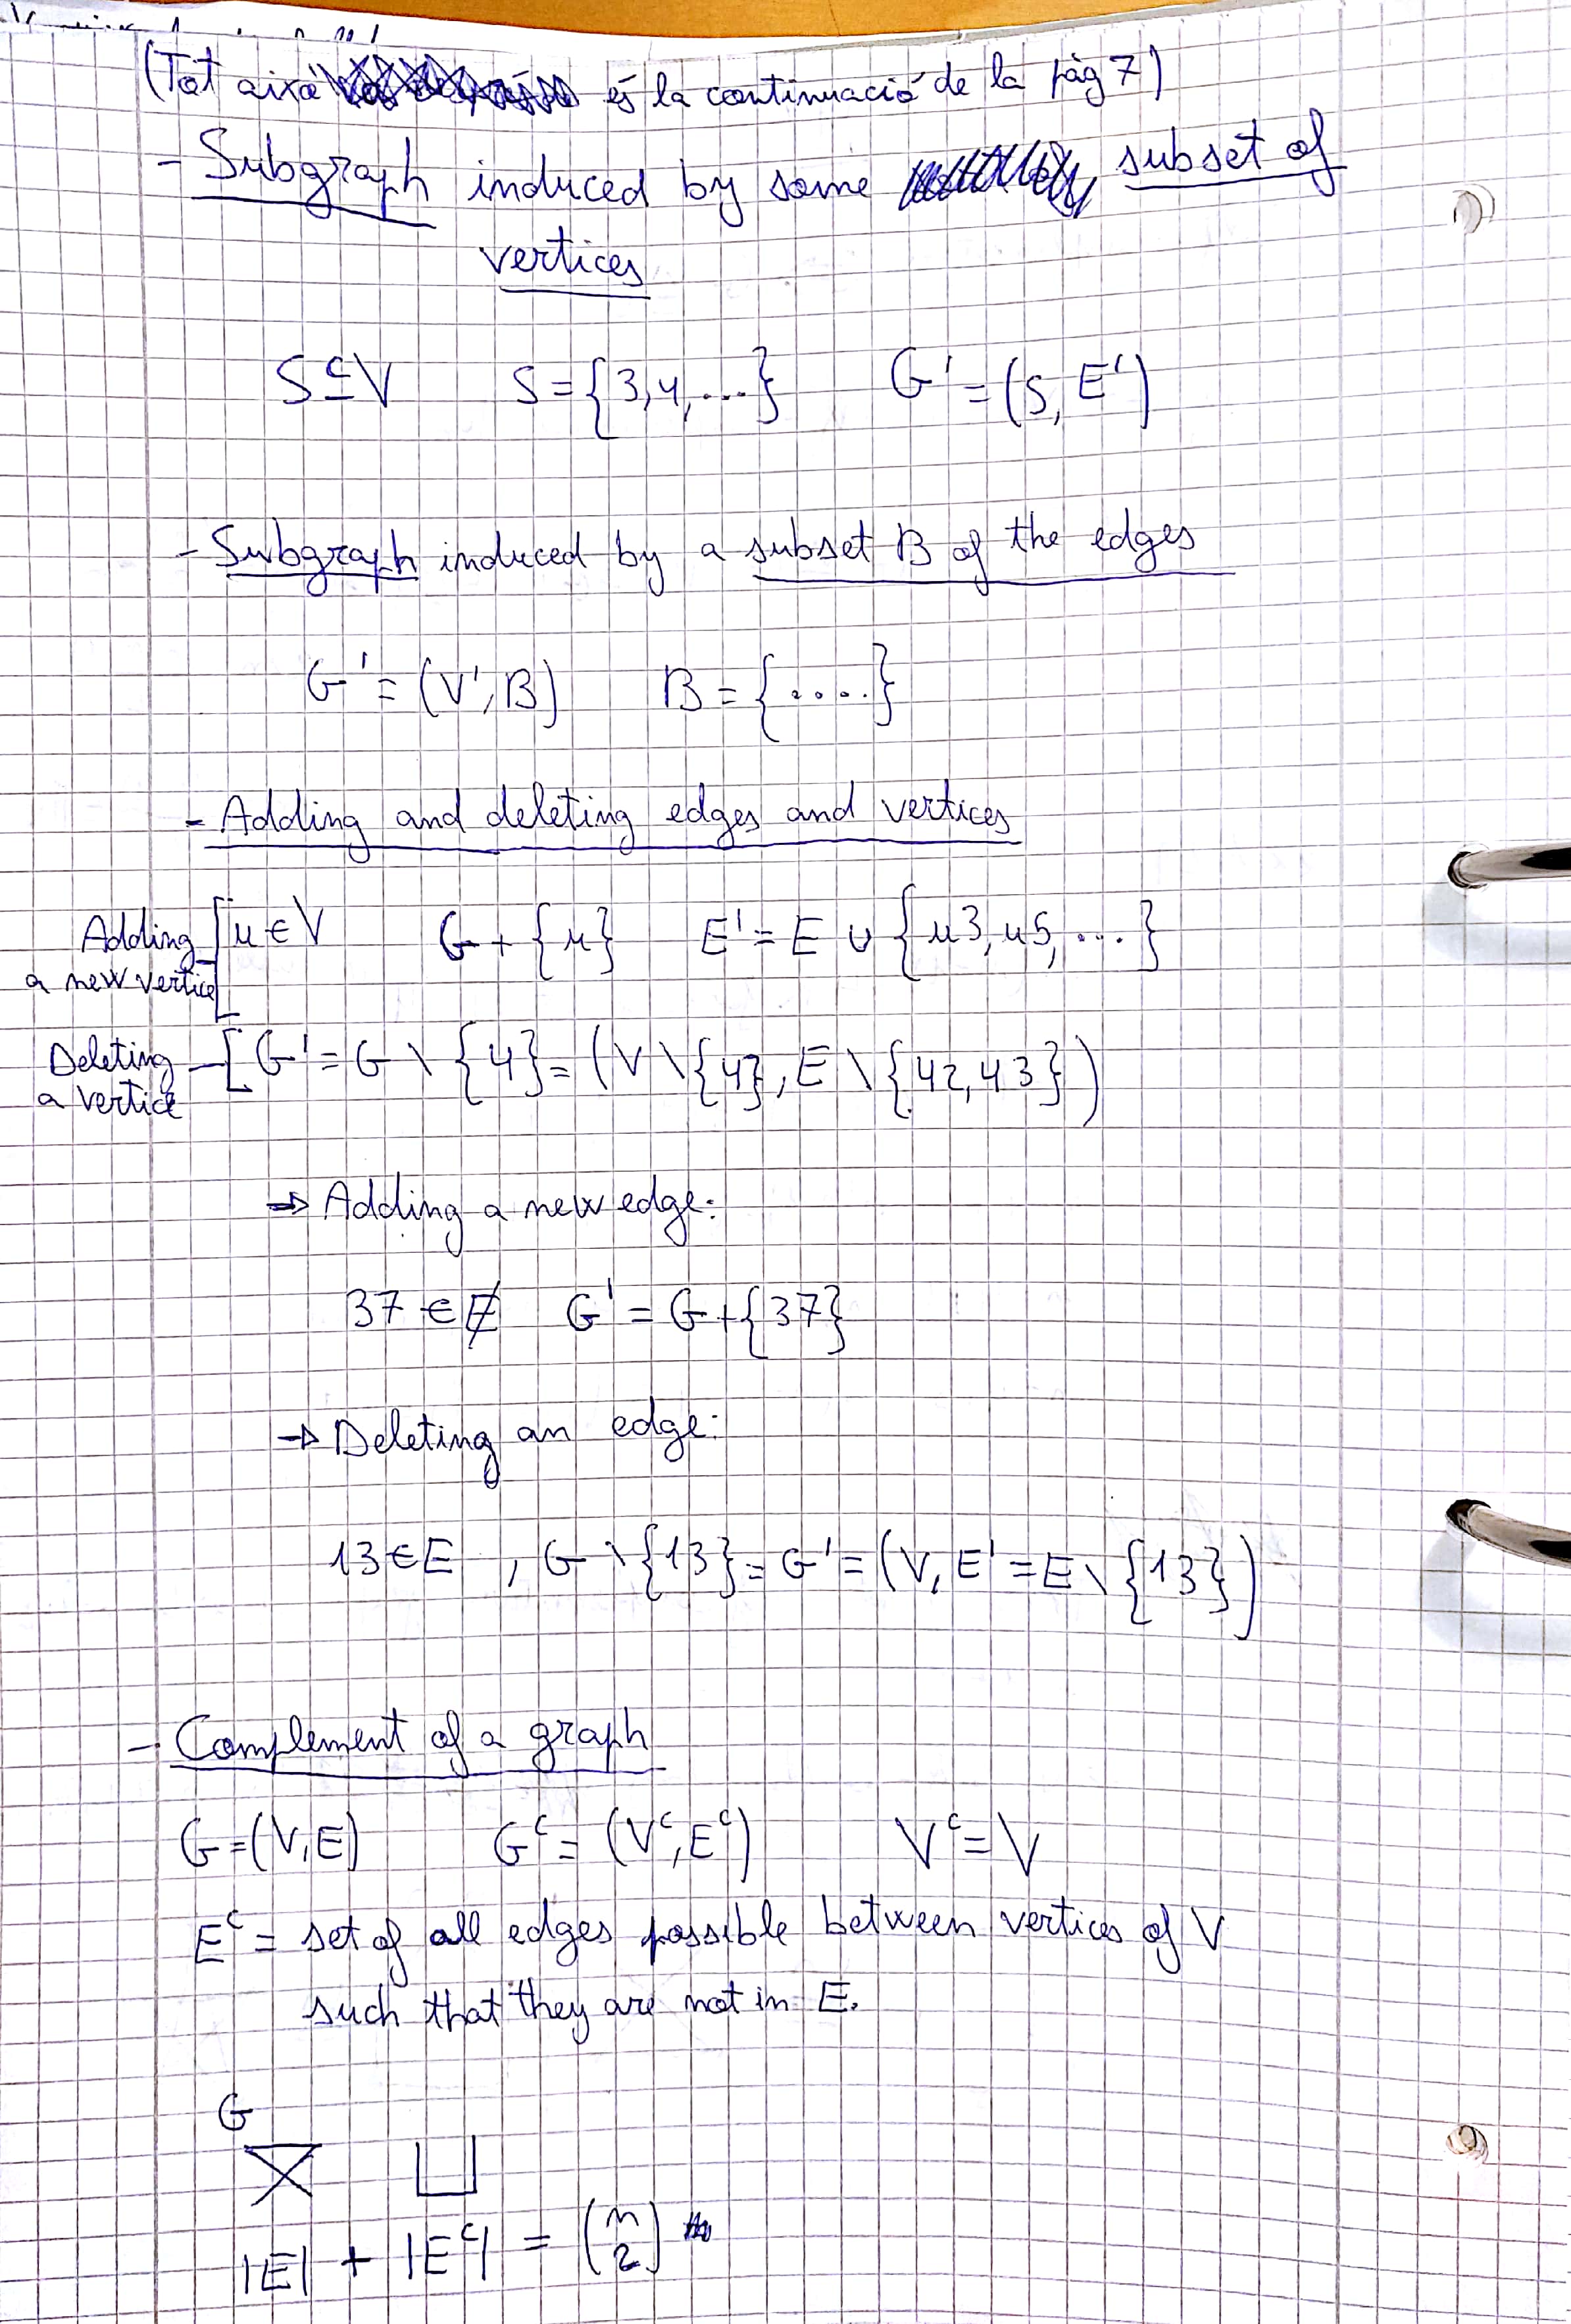 (Tot això és la continuació de la pàg 7)
- Subgraph induced by some subset of
vertices
S ⊆ V S = {3,4,...} G' = (S, E')
- Subgraph induced by a subset B of the edges
G' = (V', B) B = {....}
- Adding and deleting edges and vertices
Adding a new vertice [u ∈ V G + {u} E' = E ∪ {u3, u5, ...}
Deleting a vertice - [G' = G \ {4} = (V \ {4}, E \ {42, 43})
⇒ Adding a new edge:
37 ∈ E̸ G' = G + {37}
→ Deleting an edge:
13 ∈ E , G \ {13} = G' = (V, E' = E \ {13})
- Complement of a graph
G = (V, E) G^c = (V^c, E^c) V^c = V
E^c = set of all edges possible between vertices of V
such that they are not in E.
G
|E| + |E^c| = (n 2)